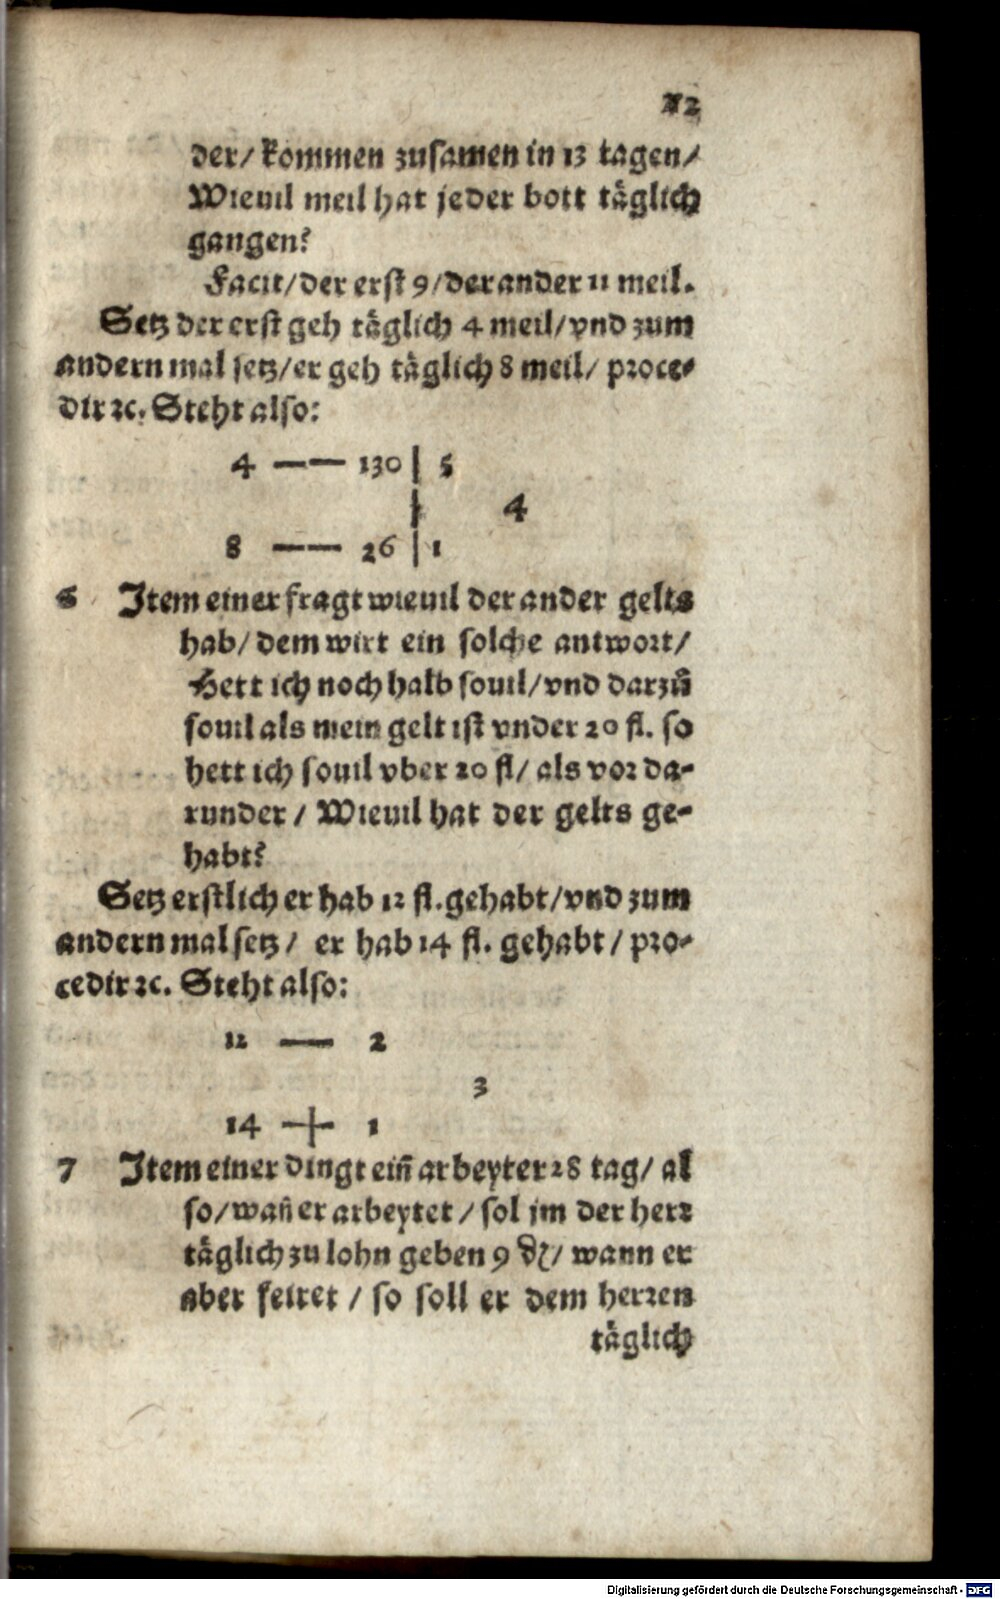 12
der/ kommen zusamen in 13 tagen/
Wieuil meil hat jeder bott täglich
gangen?
Facit/ der erst 9/ der ander 11 meil.
Setz der erst geh täglich 4 meil/ vnd zum
andern mal setz/ er geh täglich 8 meil/ proce-
dir ꝛc. Steht also:
4 —— 130 | 5
| 4
8 —— 26 | 1
6 Item einer fragt wieuil der ander gelts
hab/ dem wirt ein solche antwort/
Hett ich noch halb souil/ vnd darzů
souil als mein gelt ist vnder 20 fl. so
hett ich souil vber 20 fl/ als vor da-
runder/ Wieuil hat der gelts ge-
habt?
Setz erstlich er hab 12 fl. gehabt/ vnd zum
andern mal setz/ er hab 14 fl. gehabt/ pro-
cedir ꝛc. Steht also:
12 —— 2
3
14 —+— 1
7 Item einer dingt ein̄ arbeyter 28 tag/ al
so/ wan̄ er arbeytet/ sol jm der herr
täglich zu lohn geben 9 ₰/ wann er
aber feiret/ so soll er dem herren
täglich
Digitalisierung gefördert durch die Deutsche Forschungsgemeinschaft - DFG